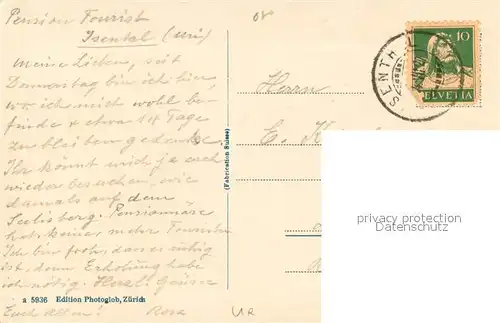 Pension Tourist
Isental (Uri)
Meine Lieben, seit
Donnerstag bin ich hier,
wo ich mich wohl be-
finde & etwa 14 Tage
zu bleiben gedenke.
Ihr könnt mich ja auch
wieder besuchen, wie
damals auf dem
Seelisberg. Pensionnäre
hat keine, mehr Touristen
Ich bin froh, dass es ruhig
ist, denn Erholung habe
ich nötig. Herzl. Grüsse
Euch allen! Rosa
a 5936 Edition Photoglob, Zürich
(Fabrication Suisse)
Herrn
E.
10
HELVETIA
SENTH
privacy protection
watermark
UR